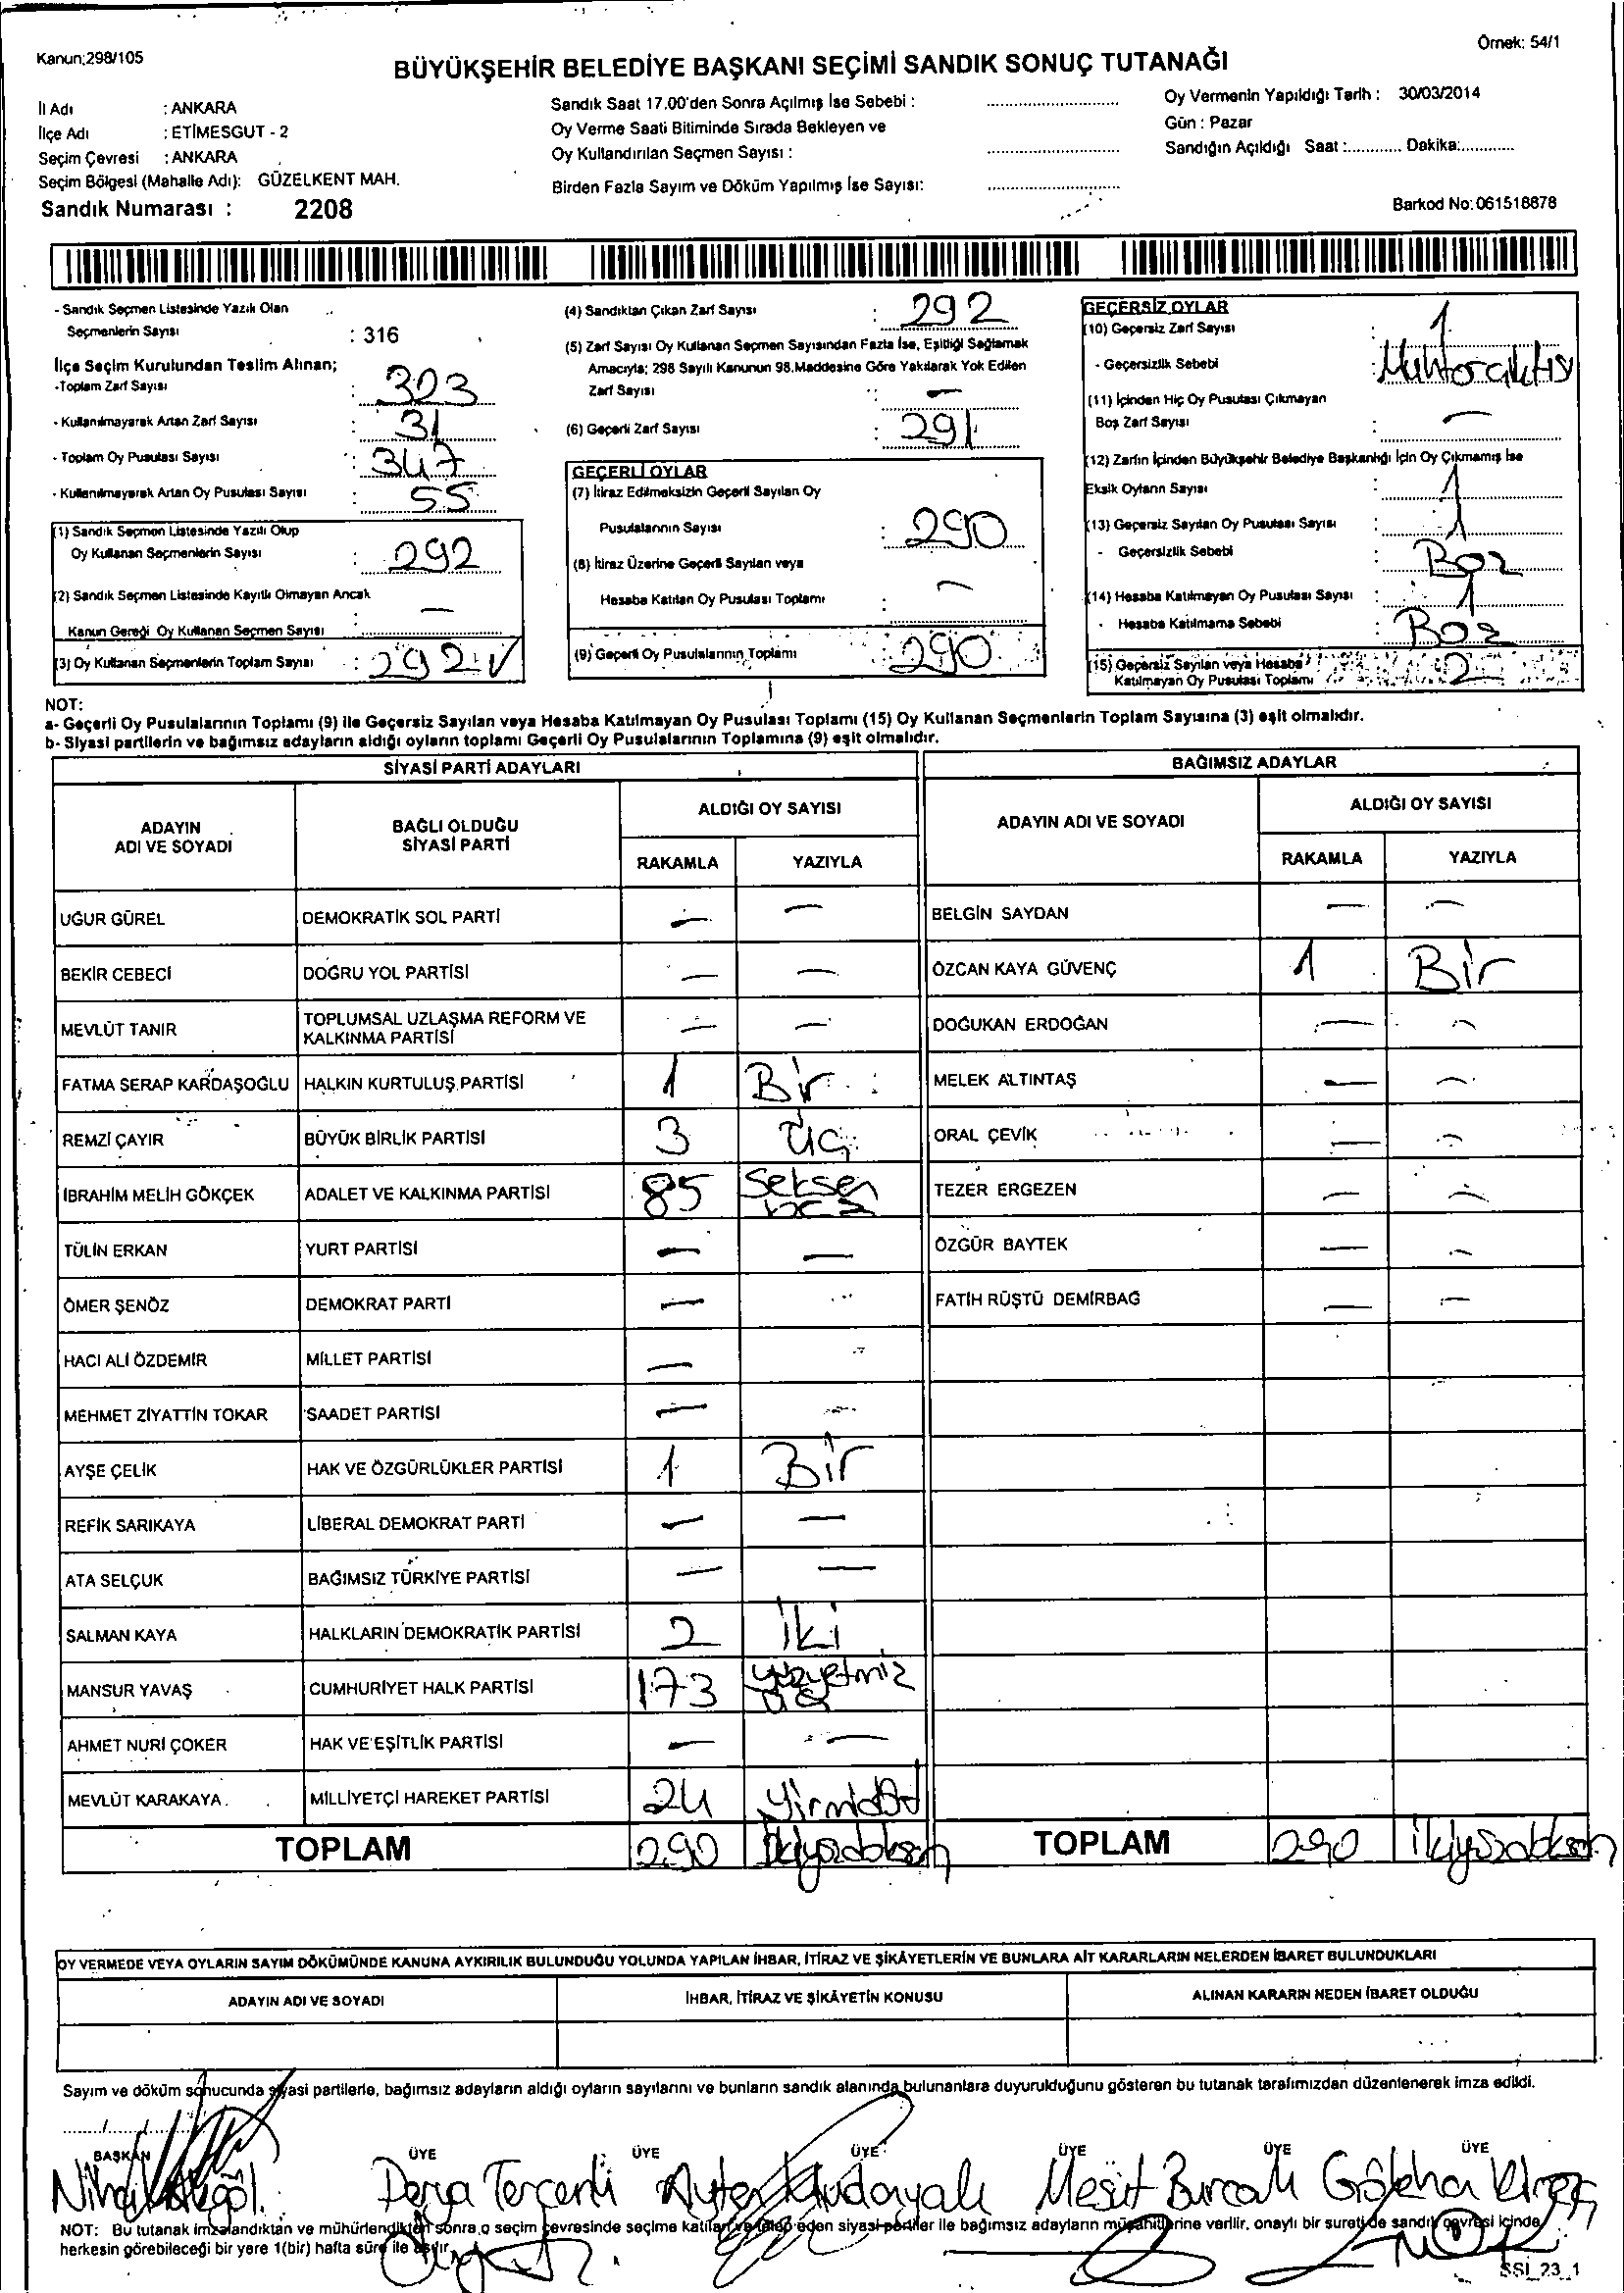 Kanun;298/105
Örnek: 54/1
BÜYÜKŞEHİR BELEDİYE BAŞKANI SEÇİMİ SANDIK SONUÇ TUTANAĞI
İl Adı : ANKARA
İlçe Adı : ETİMESGUT - 2
Seçim Çevresi : ANKARA
Seçim Bölgesi (Mahalle Adı): GÜZELKENT MAH.
Sandık Numarası : 2208
Sandık Saat 17.00'den Sonra Açılmış İse Sebebi :
Oy Verme Saati Bitiminde Sırada Bekleyen ve
Oy Kullandırılan Seçmen Sayısı :
Birden Fazla Sayım ve Döküm Yapılmış İse Sayısı:
Oy Vermenin Yapıldığı Tarih : 30/03/2014
Gün : Pazar
Sandığın Açıldığı Saat :............ Dakika:............
Barkod No: 061518878
- Sandık Seçmen Listesinde Yazılı Olan
Seçmenlerin Sayısı : 316
İlçe Seçim Kurulundan Teslim Alınan;
-Toplam Zarf Sayısı : 323
- Kullanılmayarak Artan Zarf Sayısı : 31
- Toplam Oy Pusulası Sayısı : 347
- Kullanılmayarak Artan Oy Pusulası Sayısı : 55
(1) Sandık Seçmen Listesinde Yazılı Olup
Oy Kullanan Seçmenlerin Sayısı : 292
(2) Sandık Seçmen Listesinde Kayıtlı Olmayan Ancak
Kanun Gereği Oy Kullanan Seçmen Sayısı : —
(3) Oy Kullanan Seçmenlerin Toplam Sayısı : 292 √
(4) Sandıktan Çıkan Zarf Sayısı : 292
(5) Zarf Sayısı Oy Kullanan Seçmen Sayısından Fazla İse, Eşitliği Sağlamak
Amacıyla; 298 Sayılı Kanunun 98.Maddesine Göre Yakılarak Yok Edilen
Zarf Sayısı : —
(6) Geçerli Zarf Sayısı : 291
GEÇERLİ OYLAR
(7) İtiraz Edilmeksizin Geçerli Sayılan Oy
Pusulalarının Sayısı : 290
(8) İtiraz Üzerine Geçerli Sayılan veya
Hesaba Katılan Oy Pusulası Toplamı : —
(9) Geçerli Oy Pusulalarının Toplamı : 290
GEÇERSİZ OYLAR
(10) Geçersiz Zarf Sayısı : 1
- Geçersizlik Sebebi : Muhtar çıktısı
(11) İçinden Hiç Oy Pusulası Çıkmayan
Boş Zarf Sayısı : —
(12) Zarfın İçinden Büyükşehir Belediye Başkanlığı İçin Oy Çıkmamış İse
Eksik Oyların Sayısı : 1
(13) Geçersiz Sayılan Oy Pusulası Sayısı : 1
- Geçersizlik Sebebi : Boz
(14) Hesaba Katılmayan Oy Pusulası Sayısı : 1
- Hesaba Katılmama Sebebi : Boz
(15) Geçersiz Sayılan veya Hesaba
Katılmayan Oy Pusulası Toplamı 2
NOT:
a- Geçerli Oy Pusulalarının Toplamı (9) ile Geçersiz Sayılan veya Hesaba Katılmayan Oy Pusulası Toplamı (15) Oy Kullanan Seçmenlerin Toplam Sayısına (3) eşit olmalıdır.
b- Siyasi partilerin ve bağımsız adayların aldığı oyların toplamı Geçerli Oy Pusulalarının Toplamına (9) eşit olmalıdır.
SİYASİ PARTİ ADAYLARI
ADAYIN ADI VE SOYADI
BAĞLI OLDUĞU SİYASİ PARTİ
ALDIĞI OY SAYISI
RAKAMLA YAZIYLA
UĞUR GÜREL DEMOKRATİK SOL PARTİ — —
BEKİR CEBECİ DOĞRU YOL PARTİSİ — —
MEVLÜT TANIR TOPLUMSAL UZLAŞMA REFORM VE KALKINMA PARTİSİ — —
FATMA SERAP KARDAŞOĞLU HALKIN KURTULUŞ PARTİSİ 1 Bir
REMZİ ÇAYIR BÜYÜK BİRLİK PARTİSİ 3 Üç
İBRAHİM MELİH GÖKÇEK ADALET VE KALKINMA PARTİSİ 85 Seksen beş
TÜLİN ERKAN YURT PARTİSİ — —
ÖMER ŞENÖZ DEMOKRAT PARTİ —
HACI ALİ ÖZDEMİR MİLLET PARTİSİ —
MEHMET ZİYATTİN TOKAR SAADET PARTİSİ — —
AYŞE ÇELİK HAK VE ÖZGÜRLÜKLER PARTİSİ 1 Bir
REFİK SARIKAYA LİBERAL DEMOKRAT PARTİ — —
ATA SELÇUK BAĞIMSIZ TÜRKİYE PARTİSİ — —
SALMAN KAYA HALKLARIN DEMOKRATİK PARTİSİ 2 İki
MANSUR YAVAŞ CUMHURİYET HALK PARTİSİ 173 yüzyetmiz üç
AHMET NURİ ÇOKER HAK VE EŞİTLİK PARTİSİ — —
MEVLÜT KARAKAYA MİLLİYETÇİ HAREKET PARTİSİ 24 yirmidört
TOPLAM 290 ikiyüzdoksan
BAĞIMSIZ ADAYLAR
ADAYIN ADI VE SOYADI
ALDIĞI OY SAYISI
RAKAMLA YAZIYLA
BELGİN SAYDAN — —
ÖZCAN KAYA GÜVENÇ 1 Bir
DOĞUKAN ERDOĞAN — —
MELEK ALTINTAŞ — —
ORAL ÇEVİK — —
TEZER ERGEZEN — —
ÖZGÜR BAYTEK — —
FATİH RÜŞTÜ DEMİRBAĞ — —
TOPLAM 290 ikiyüzdoksan
OY VERMEDE VEYA OYLARIN SAYIM DÖKÜMÜNDE KANUNA AYKIRILIK BULUNDUĞU YOLUNDA YAPILAN İHBAR, İTİRAZ VE ŞİKÂYETLERİN VE BUNLARA AİT KARARLARIN NELERDEN İBARET BULUNDUKLARI
ADAYIN ADI VE SOYADI
İHBAR, İTİRAZ VE ŞİKÂYETİN KONUSU
ALINAN KARARIN NEDEN İBARET OLDUĞU
Sayım ve döküm sonucunda siyasi partilerle, bağımsız adayların aldığı oyların sayılarını ve bunların sandık alanında bulunanlara duyurulduğunu gösteren bu tutanak tarafımızdan düzenlenerek imza edildi.
....../....../......
BAŞKAN ÜYE ÜYE ÜYE ÜYE ÜYE ÜYE
Derya Terçenli Ayten Mesut Burcalı Gökhan
NOT: Bu tutanak imzalandıktan ve mühürlendikten sonra,o seçim çevresinde seçime katılan ve talep eden siyasi partiler ile bağımsız adayların müşahitlerine verilir, onaylı bir sureti de sandık çevresi içinde
herkesin görebileceği bir yere 1(bir) hafta süre ile asılır.
SSİ_23_1